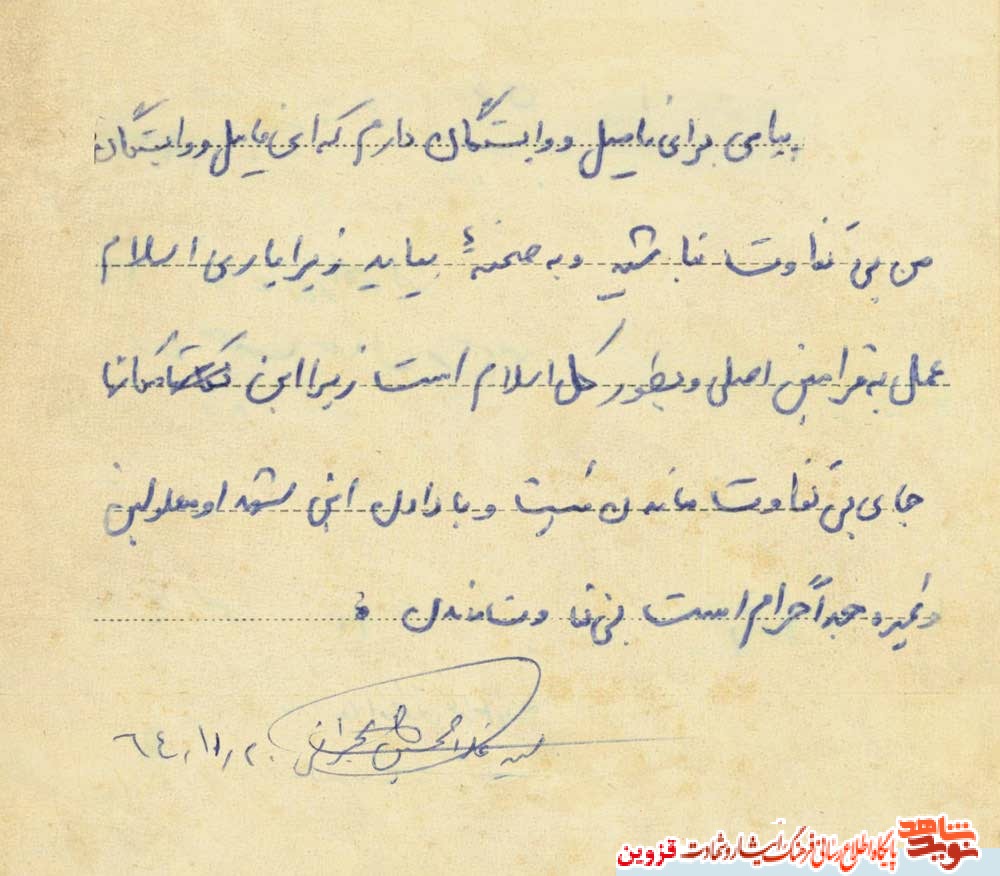 پیامی برای فامیل و وابستگان دارم که ای فامیل و وابستگان
من بی تفاوت نباشید و به صحنهٔ بیاید زیرا یاری اسلام
عمل به فرامین اصلی و بطور کل اسلام است زیرا این
جای بی تفاوت ماندن نیست و با دادن این شهدا و معلولین
و غیره جداً حرام است بی تفاوت ماندن
سید غلامحسین
۶۴/۱۱/۲۰
نوید شاهد پایگاه اطلاع رسانی فرهنگ ایثار و شهادت قزوین